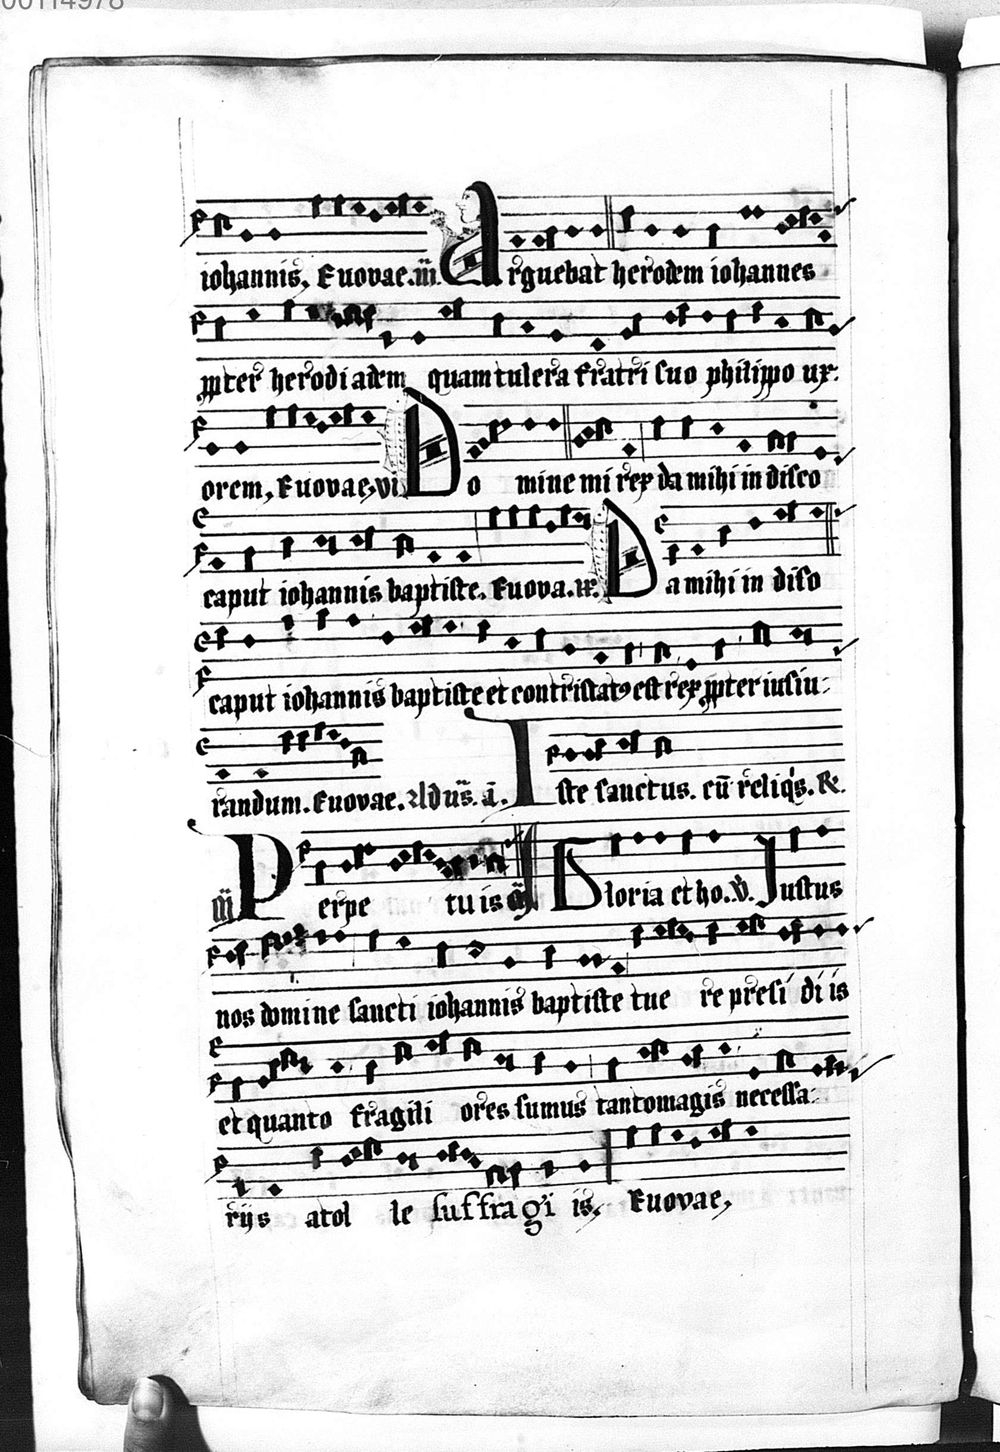 00114978
iohannis, Euovae.iii. Arguebat herodem iohannes
ppter herodiadem quam tulerat fratri suo philippo ux:
orem, Euovae, vi Domine mi rex da mihi in disco
caput iohannis baptiste. Euova. Da mihi in disco
caput iohannis baptiste et contristatꝰ est rex ppter iusiu:
randum. Euovae. Iste sanctus. cū reliqs. R.
iii Perpetuis Gloria et ho. V. Justus
nos domine sancti iohannis baptiste tuere presidiis
et quanto fragiliores sumus tantomagis necessa:
rijs atolle suffragiis, Euovae,